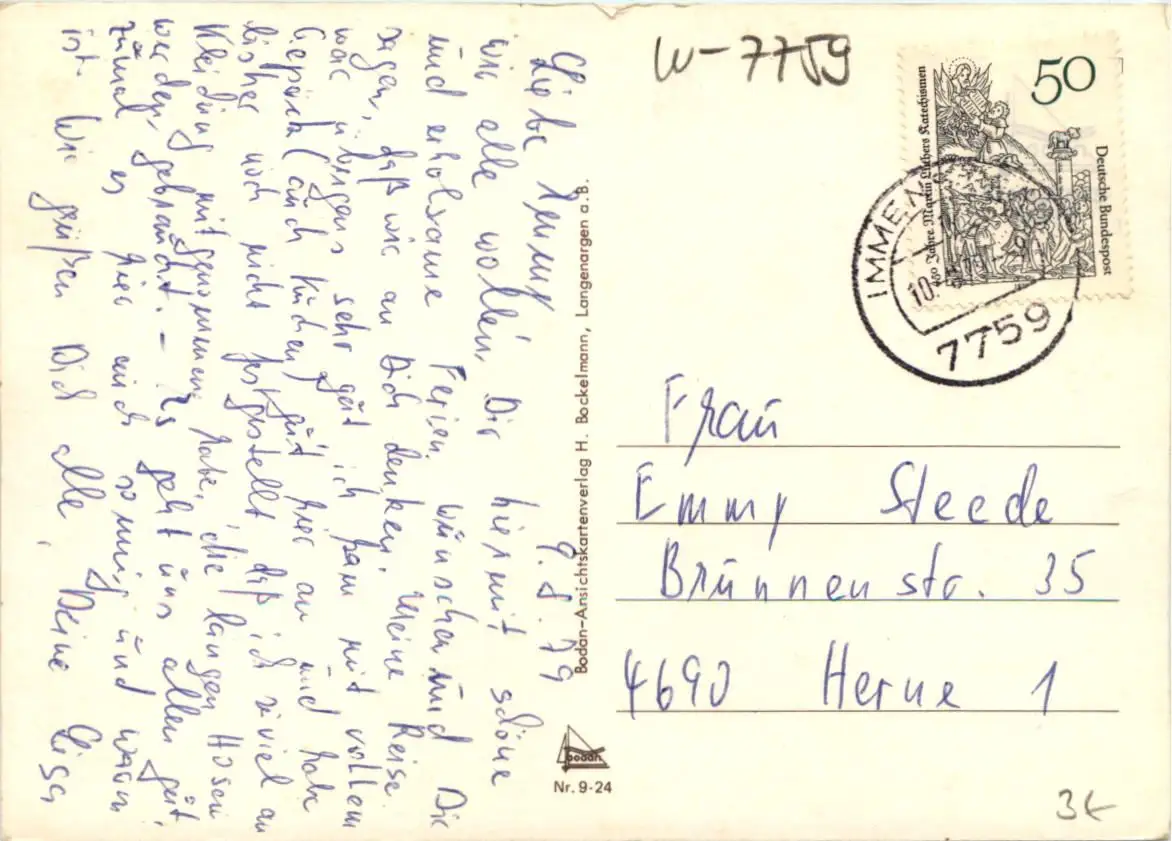 Liebe Emmy! 9.8.79
wir alle wollen Dir hiermit schöne
und erholsame Ferien wünschen und Dir
sagen, daß wir an Dich denken. Meine Reise
war übrigens sehr gut ich kam mit vollem
Gepäck (auch Kuchen) gut hier an und habe
bisher noch nicht festgestellt, daß ich zuviel an
Kleidung mitgenommen habe, die langen Hosen
werden gebraucht. – Es geht uns allen gut,
zumal es hier auch sonnig und warm
ist. Wir grüßen Dich alle, Deine Lisa
Bodan-Ansichtskartenverlag H. Bockelmann, Langenargen a. B.
bodan
Nr. 9-24
W-7759
50
Deutsche Bundespost
450 Jahre Martin Luthers Katechismen
IMMEN
10.
79
7759
Frau
Emmy Steede
Brunnenstr. 35
4690 Herne 1
3€